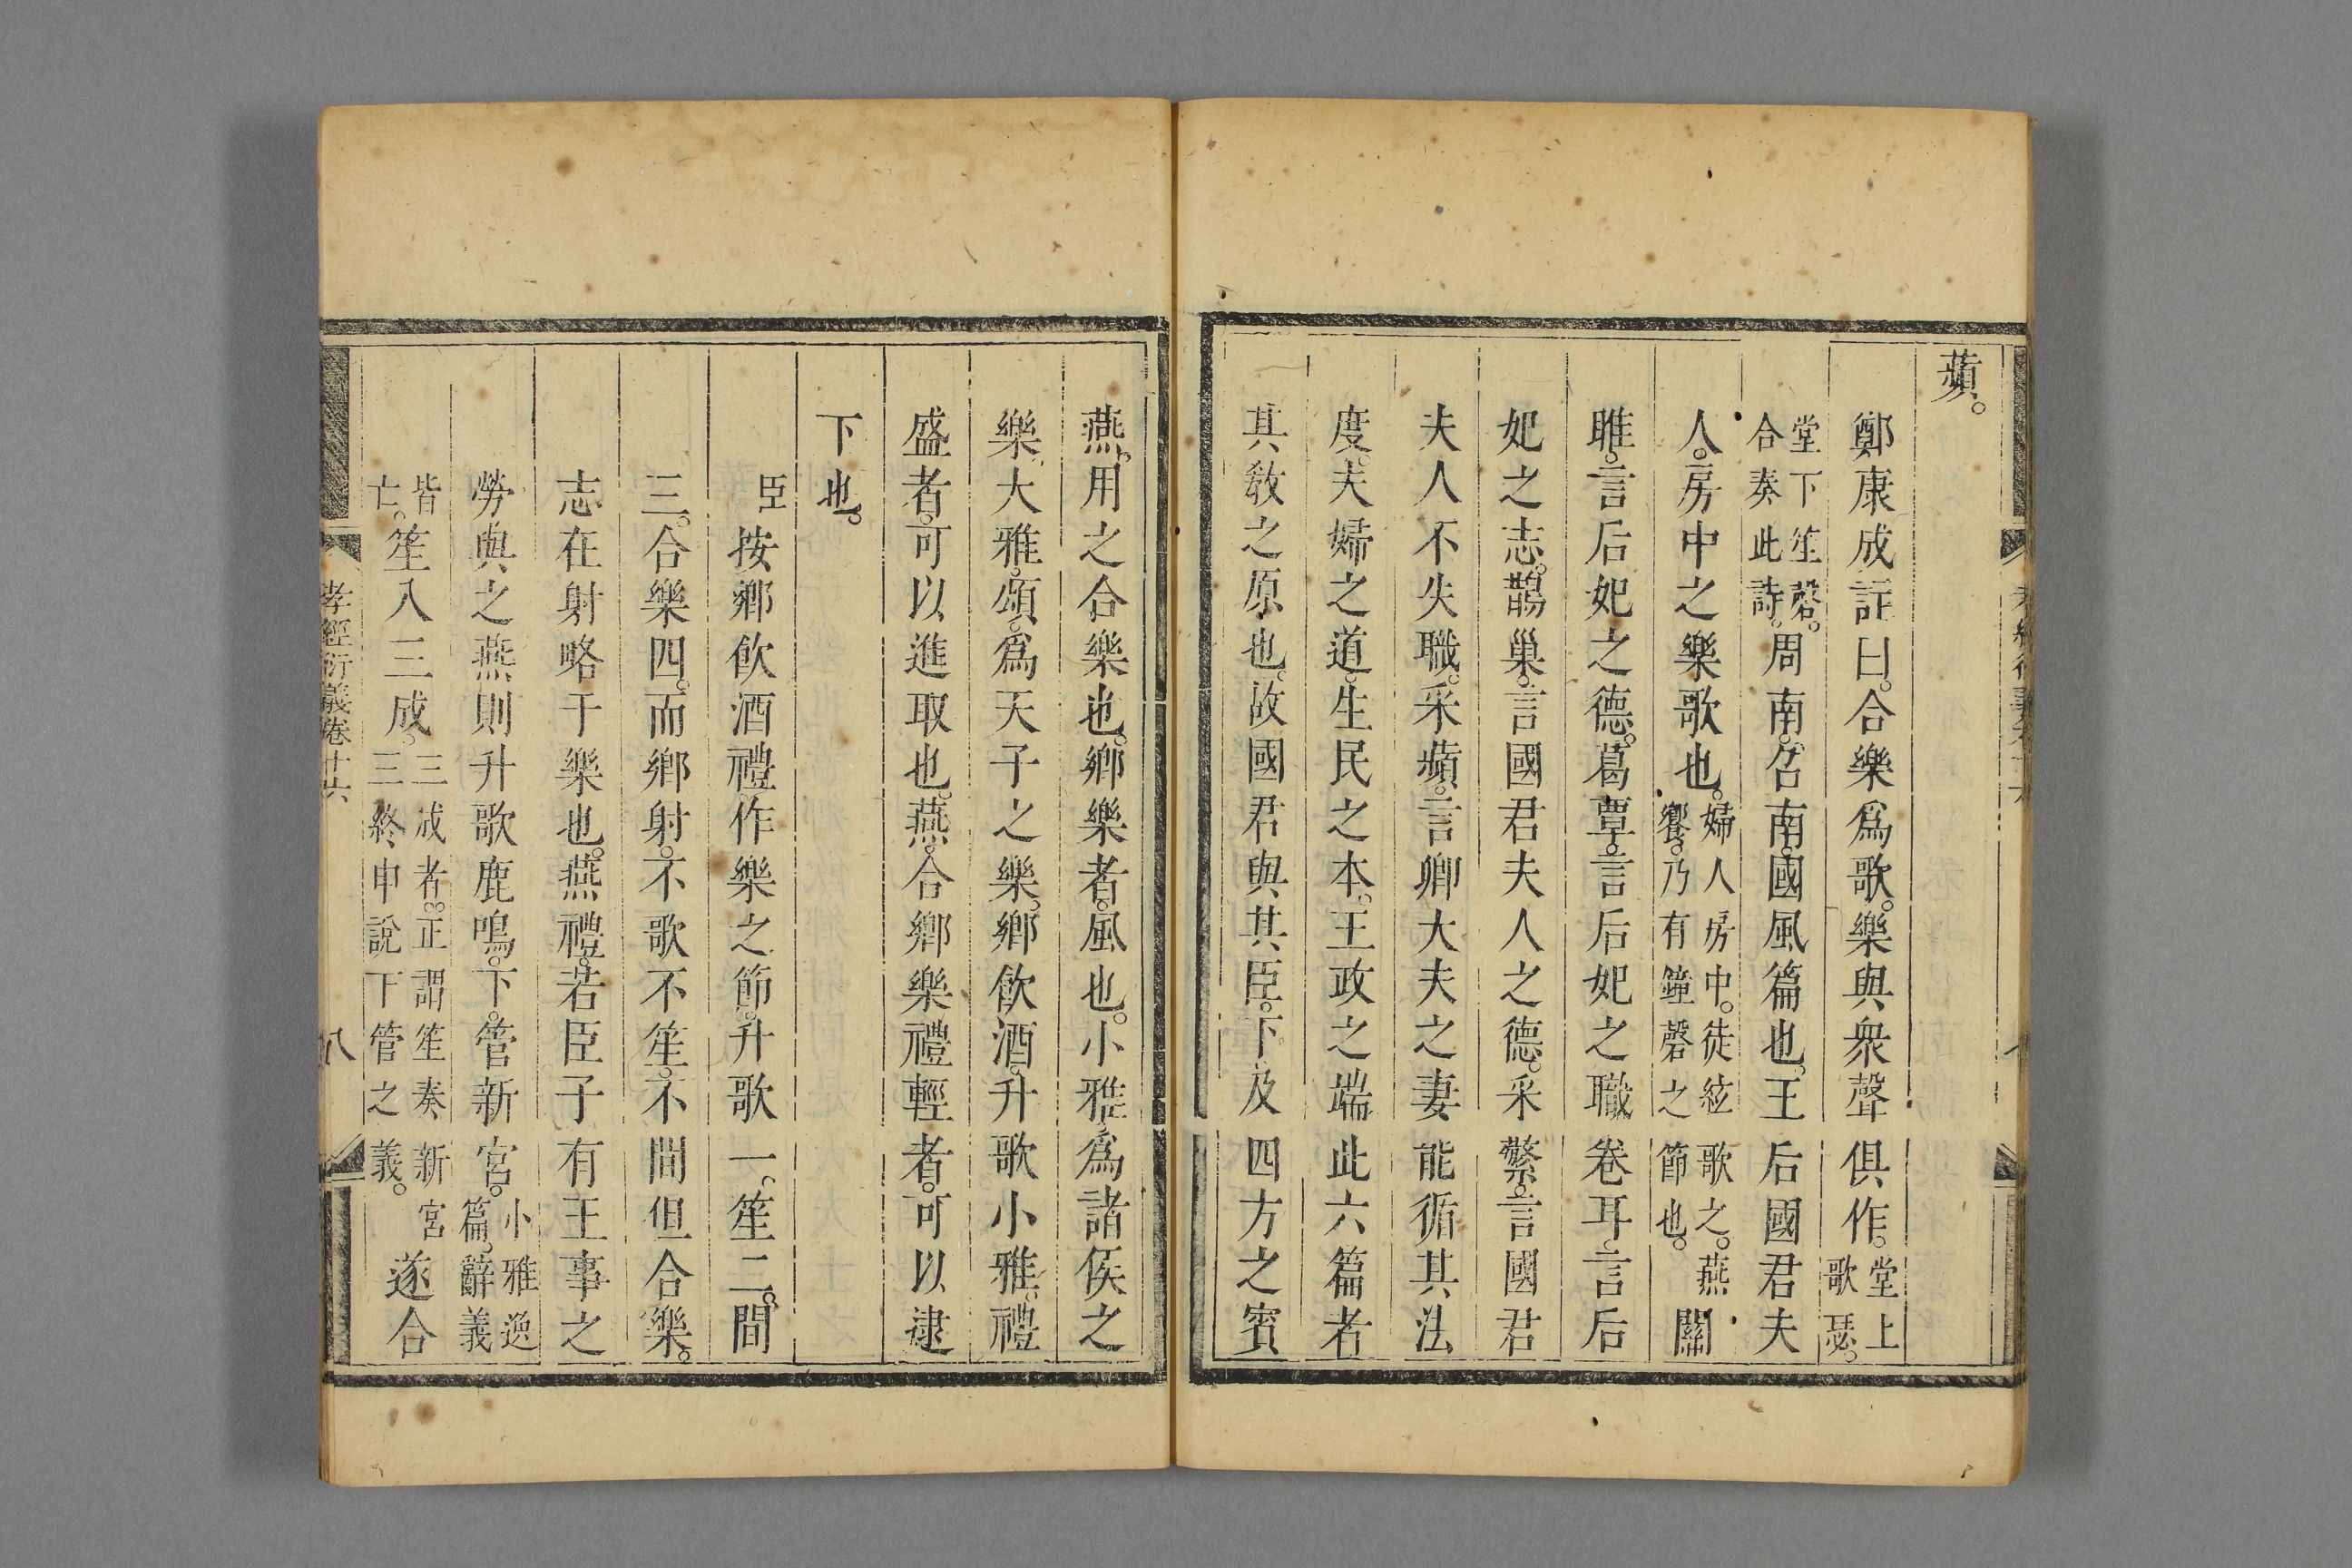 蘋。
鄭康成註曰。合樂爲歌。樂與衆聲俱作。堂上歌瑟。
堂下笙磬。合奏此詩。周南。召南。國風篇也。王后國君夫
人。房中之樂歌也。婦人房中。徒絃歌之。燕饗。乃有鐘磬之節也。關
雎。言后妃之德。葛覃。言后妃之職。卷耳。言后
妃之志。鵲巢。言國君夫人之德。采蘩。言國君
夫人不失職。采蘋。言卿大夫之妻。能循其法
度。夫婦之道。生民之本。王政之端。此六篇者
其敎之原也。故國君與其臣。下及四方之賓
燕。用之合樂也。鄉樂者。風也。小雅爲諸侯之
樂。大雅。頌。爲天子之樂。鄉飲酒。升歌小雅。禮
盛者。可以進取也。燕。合鄉樂。禮輕者。可以逮
下也。
臣按鄉飲酒禮。作樂之節。升歌一。笙二。間
三。合樂四。而鄉射。不歌不笙。不間但合樂。
志在射略于樂也。燕禮。若臣子有王事之
勞與之燕則升歌鹿鳴。下。管新宮。小雅逸篇。辭義
皆亡。笙入三成。三成者。正謂笙奏新宮三終申說下管之義。遂合
孝經衍義卷十六
八